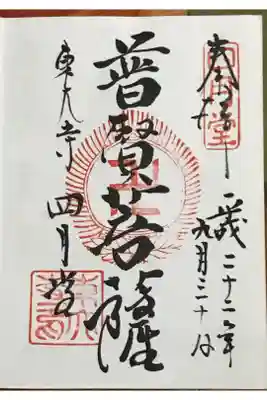 奉拝
平成二十二年
九月三十日
普賢菩薩
東大寺 四月堂